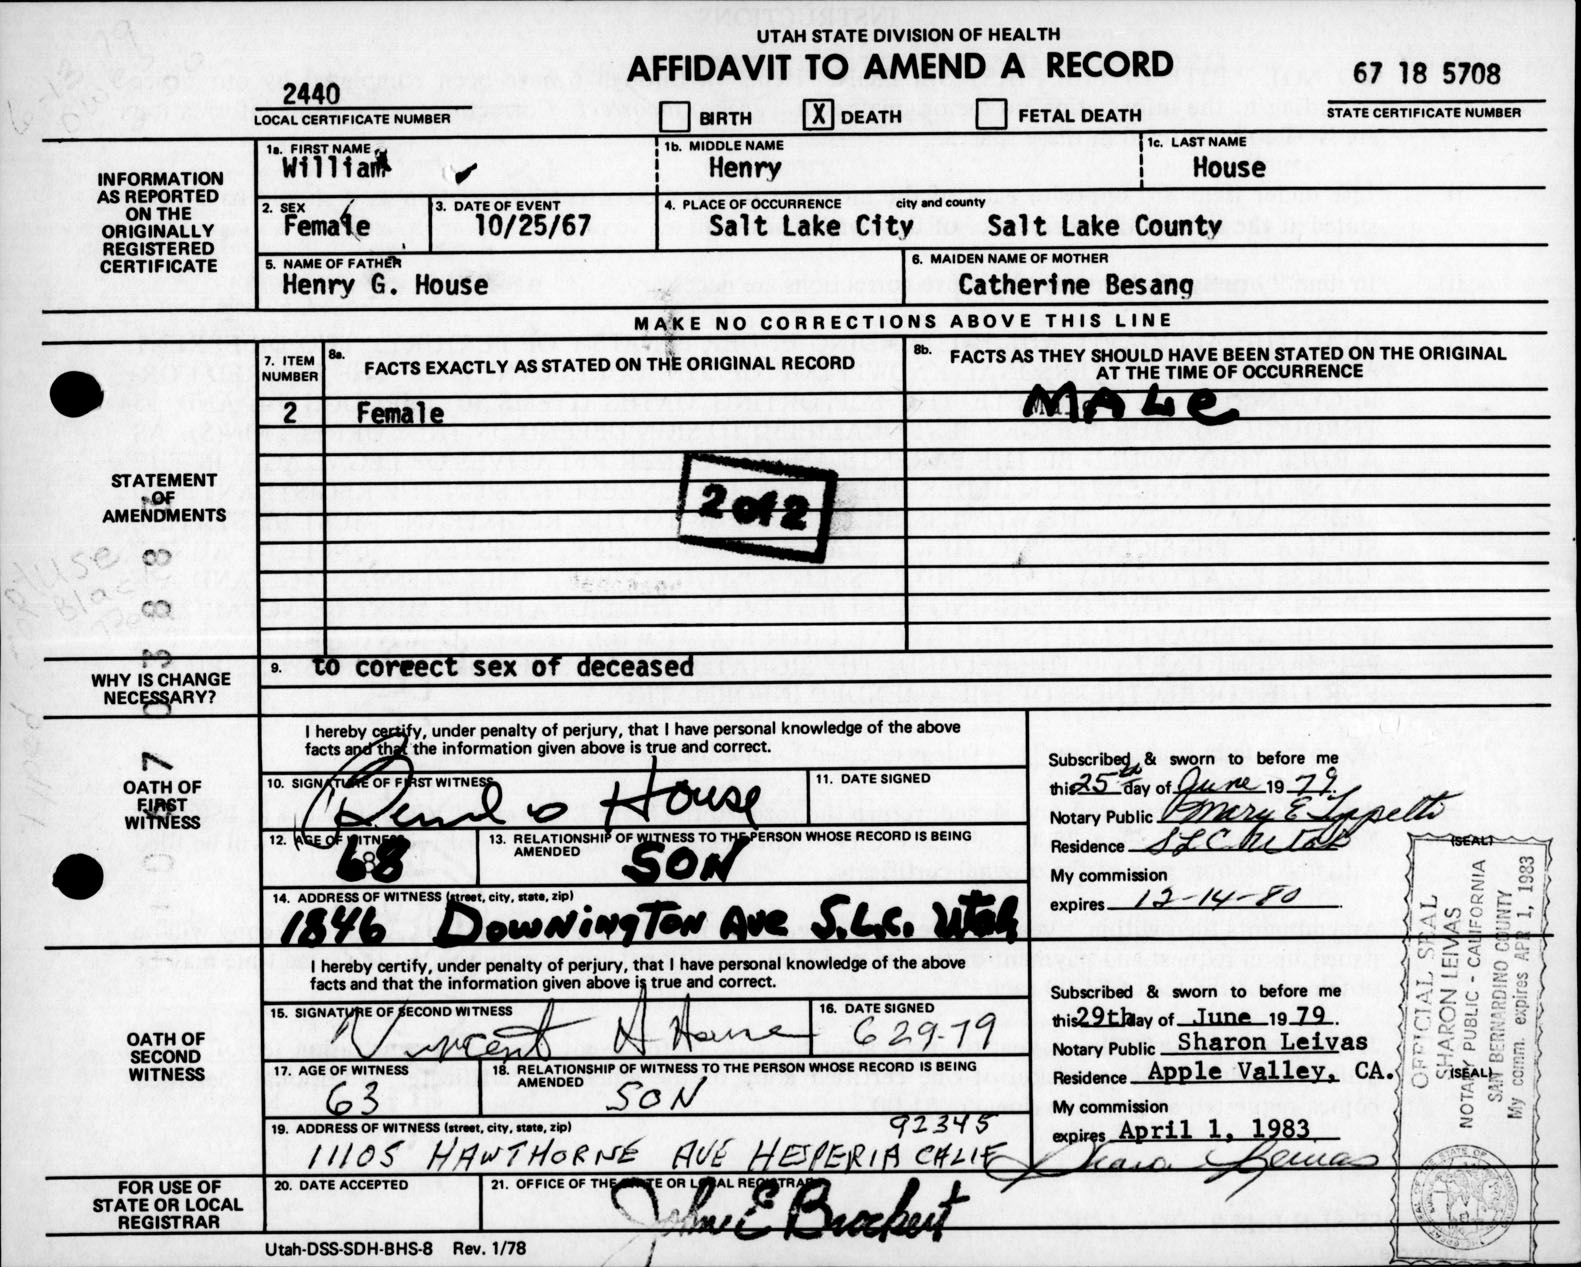 UTAH STATE DIVISION OF HEALTH
AFFIDAVIT TO AMEND A RECORD
67 18 5708
STATE CERTIFICATE NUMBER
2440
LOCAL CERTIFICATE NUMBER
BIRTH X DEATH FETAL DEATH
INFORMATION
AS REPORTED
ON THE
ORIGINALLY
REGISTERED
CERTIFICATE
1a. FIRST NAME
William
1b. MIDDLE NAME
Henry
1c. LAST NAME
House
2. SEX
Female
3. DATE OF EVENT
10/25/67
4. PLACE OF OCCURRENCE city and county
Salt Lake City Salt Lake County
5. NAME OF FATHER
Henry G. House
6. MAIDEN NAME OF MOTHER
Catherine Besang
MAKE NO CORRECTIONS ABOVE THIS LINE
STATEMENT
OF
AMENDMENTS
7. ITEM
NUMBER
8a. FACTS EXACTLY AS STATED ON THE ORIGINAL RECORD
8b. FACTS AS THEY SHOULD HAVE BEEN STATED ON THE ORIGINAL
AT THE TIME OF OCCURRENCE
2 Female MALe
2 of 2
WHY IS CHANGE
NECESSARY?
9. to correct sex of deceased
OATH OF
FIRST
WITNESS
I hereby certify, under penalty of perjury, that I have personal knowledge of the above
facts and that the information given above is true and correct.
10. SIGNATURE OF FIRST WITNESS
House
11. DATE SIGNED
12. AGE OF WITNESS
68
13. RELATIONSHIP OF WITNESS TO THE PERSON WHOSE RECORD IS BEING
AMENDED
SON
14. ADDRESS OF WITNESS (street, city, state, zip)
1846 DOWNINGTON AVE S.L.C. Utah
Subscribed & sworn to before me
this 25th day of June 1979.
Notary Public Mary E
Residence SLC Utah
(SEAL)
My commission
expires 12-14-80
OATH OF
SECOND
WITNESS
I hereby certify, under penalty of perjury, that I have personal knowledge of the above
facts and that the information given above is true and correct.
15. SIGNATURE OF SECOND WITNESS
Vincent H House
16. DATE SIGNED
6 29-79
17. AGE OF WITNESS
63
18. RELATIONSHIP OF WITNESS TO THE PERSON WHOSE RECORD IS BEING
AMENDED
SON
19. ADDRESS OF WITNESS (street, city, state, zip)
92345
11105 HAWTHORNE AVE HESPERIA CALIF
Subscribed & sworn to before me
this 29th day of June 1979.
Notary Public Sharon Leivas
Residence Apple Valley, CA.
(SEAL)
My commission
expires April 1, 1983
Sharon Leivas
OFFICIAL SEAL
SHARON LEIVAS
NOTARY PUBLIC - CALIFORNIA
SAN BERNARDINO COUNTY
My comm. expires APR 1, 1983
FOR USE OF
STATE OR LOCAL
REGISTRAR
20. DATE ACCEPTED
21. OFFICE OF THE STATE OR LOCAL REGISTRAR
John E Brockert
Utah-DSS-SDH-BHS-8 Rev. 1/78